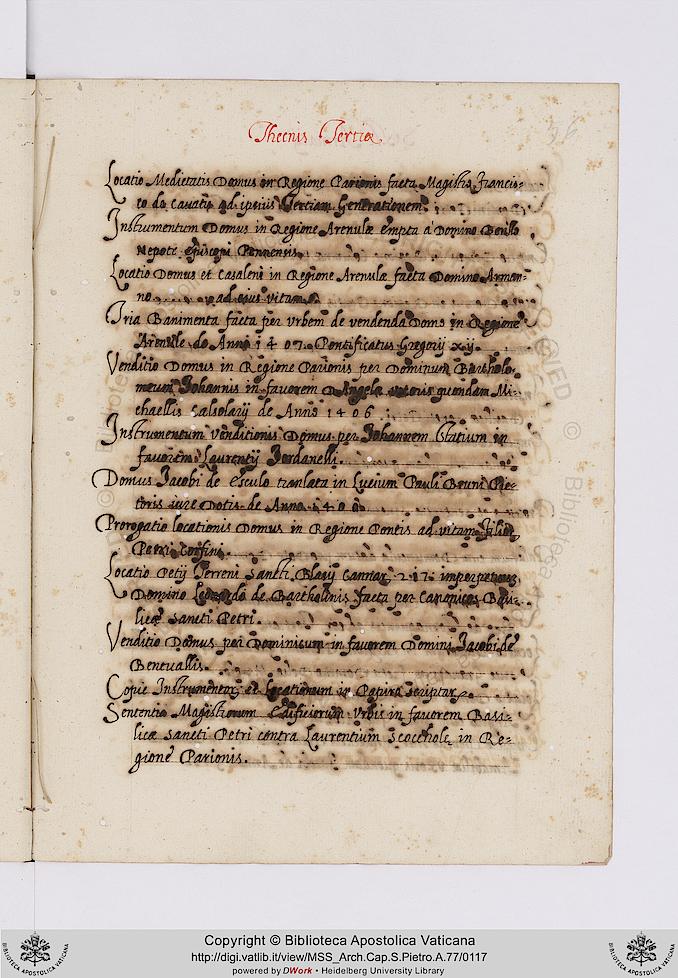 Thecnis Tertia
Locatio Medietatis Domus in Regione Parionis facta Magistro Francis-
co de Cavatis ad ipsius Tertiam Generationem.
Instrumentum Domus in Regione Arenulæ empta a Domino
Nepote Episcopi Pennensis.
Locatio Domus et Casaleni in Regione Arenulæ facta Domino Arman-
no ad eius vitam.
Tria Banimenta facta per Urbem de vendenda Domo in Regione
Arenulæ de Anno 1407. Pontificatus Gregorij xij.
Venditio Domus in Regione Parionis per Dominum Bartholo-
meum Johannis in favorem D. Angelæ uxoris quondam Mi-
chaellis Calsolarij de Anno 1406
Instrumentum venditionis Domus per Johannem Statium in
favorem Laurentij Jordanelli.
Domus Jacobi de Esculo tranlata in Lucium Pauli Bruni Pic-
toris iure Dotis de Anno
Prorogatio locationis Domus in Regione Pontis ad vitam
Petri
Locatio Petij Terreni Sancti Blasij Cannar. 217.
Domino Leonardo de Bartholinis facta per Canonicos Basi-
licæ Sancti Petri.
Venditio Domus per Dominicum in favorem Domini Jacobi de
Bentvallis.
Copie Instrumentor. et Locationum in Papiro Scriptar.
Sententia Magistrorum Edificiorum Urbis in favorem Basi-
licæ Sancti Petri contra Laurentium Scocchole in Re-
gione Parionis.
Copyright © Biblioteca Apostolica Vaticana
http://digi.vatlib.it/view/MSS_Arch.Cap.S.Pietro.A.77/0117
powered by DWork • Heidelberg University Library